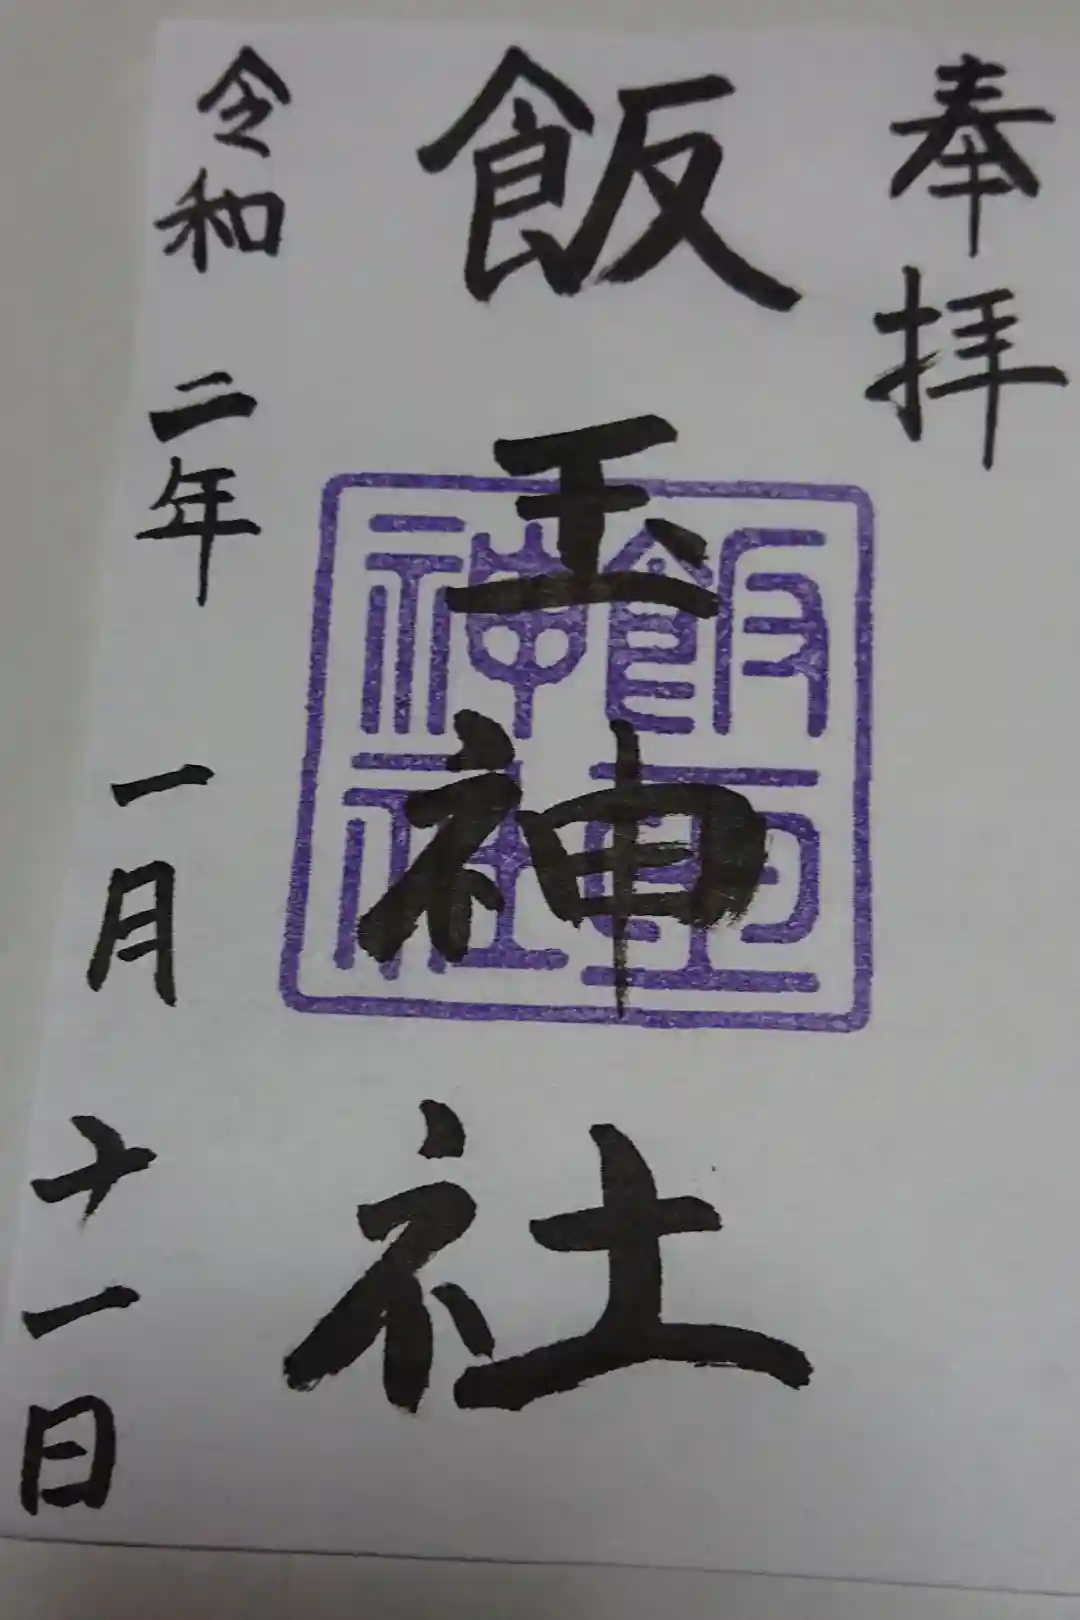 奉拝
飯玉神社
飯玉神社
令和二年一月十一日